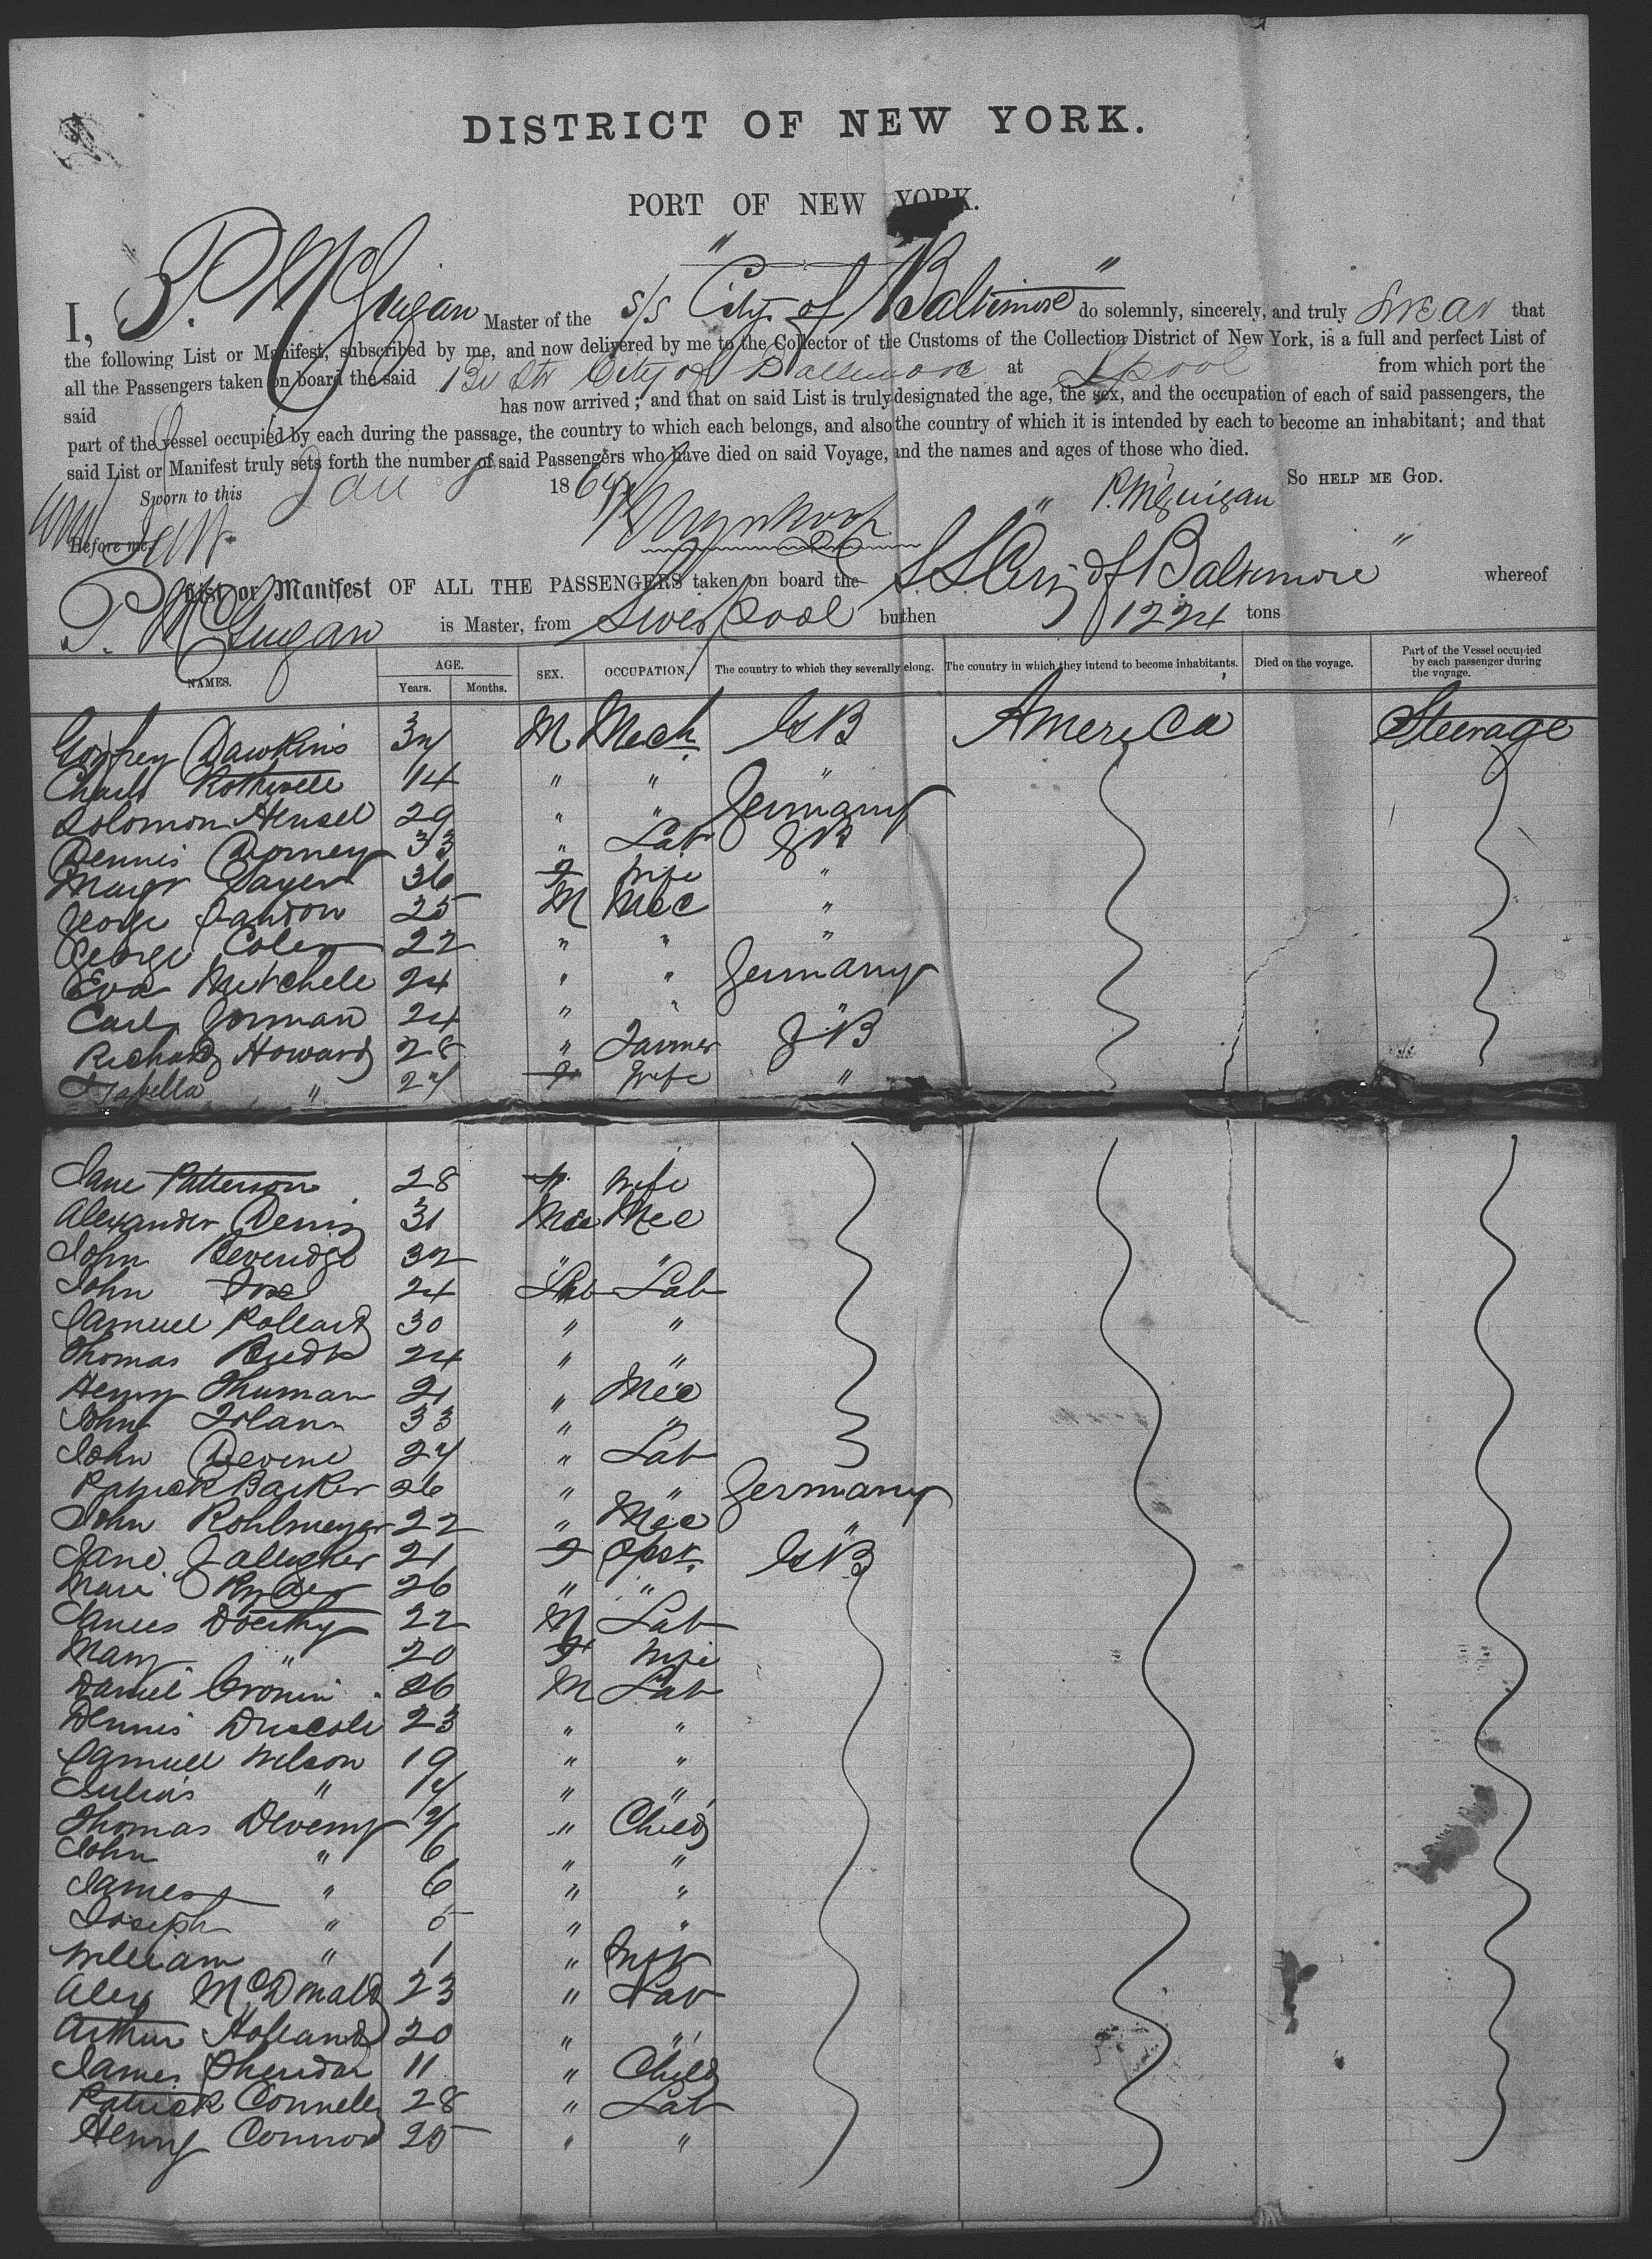 DISTRICT OF NEW YORK.
PORT OF NEW YORK.
I, P. McGuigan Master of the S/S "City of Baltimore" do solemnly, sincerely, and truly swear that
the following List or Manifest, subscribed by me, and now delivered by me to the Collector of the Customs of the Collection District of New York, is a full and perfect List of
all the Passengers taken on board the said Br Str City of Baltimore at Lpool from which port the
said has now arrived; and that on said List is truly designated the age, the sex, and the occupation of each of said passengers, the
part of the vessel occupied by each during the passage, the country to which each belongs, and also the country of which it is intended by each to become an inhabitant; and that
said List or Manifest truly sets forth the number of said Passengers who have died on said Voyage, and the names and ages of those who died.
Sworn to this Jan 186 P. McGuigan SO HELP ME GOD.
Before me,
List or Manifest OF ALL THE PASSENGERS taken on board the S.S. City of Baltimore" whereof
P. McGuigan is Master, from Liverpool buthen 1224 tons
NAMES. AGE. Years. Months. SEX. OCCUPATION. The country to which they severally elong. The country in which they intend to become inhabitants. Died on the voyage. Part of the Vessel occupied by each passenger during the voyage.
Godfrey Dawkins 34 M Mech GB America Steerage
Charls Rothwell 14 " " "
Solomon Hensel 29 " " Germany
Dennis Dorney 33 " Lab GB
Margt Sayer 36 F Wife "
George 25 M Mec "
George Coley 22 " " "
Eva Mitchell 24 " " Germany
Carl Gorman 24 " " "
Richard Howard 28 " Farmer GB
Isabella " 24 F Wife "
Jane Patterson 28 F Wife
Alexander Deniz 31 Mec
John Beveridge 32 " "
John Fox 24 Lab Lab
Samuel Pollard 30 " "
Thomas 24 " "
Henry Thuman 21 " Mec
John Tolan 33 " "
John Devine 24 " Lab
Patrick Barker 26 " " Germany
John Rohlmeyer 22 " Mec "
Jane Gallegher 21 F Spst. GB
Mary Ryder 26 " "
James Doerthy 22 M Lab
Mary " 20 F Wife
Daniel Cronin 26 M Lab
Dennis Driscoll 23 " "
Samuel Wilson 19 " "
Julius " 14 " "
Thomas Deveny 9 " Child
John " 6 " "
James " 6 " "
Joseph " 5 " "
William " 1 " Inft
Alex McDonald 23 " Lab
Arthur Holland 20 " "
James Sheridan 11 " Child
Patrick Connelly 28 " Lab
Henry Connor 25 " "